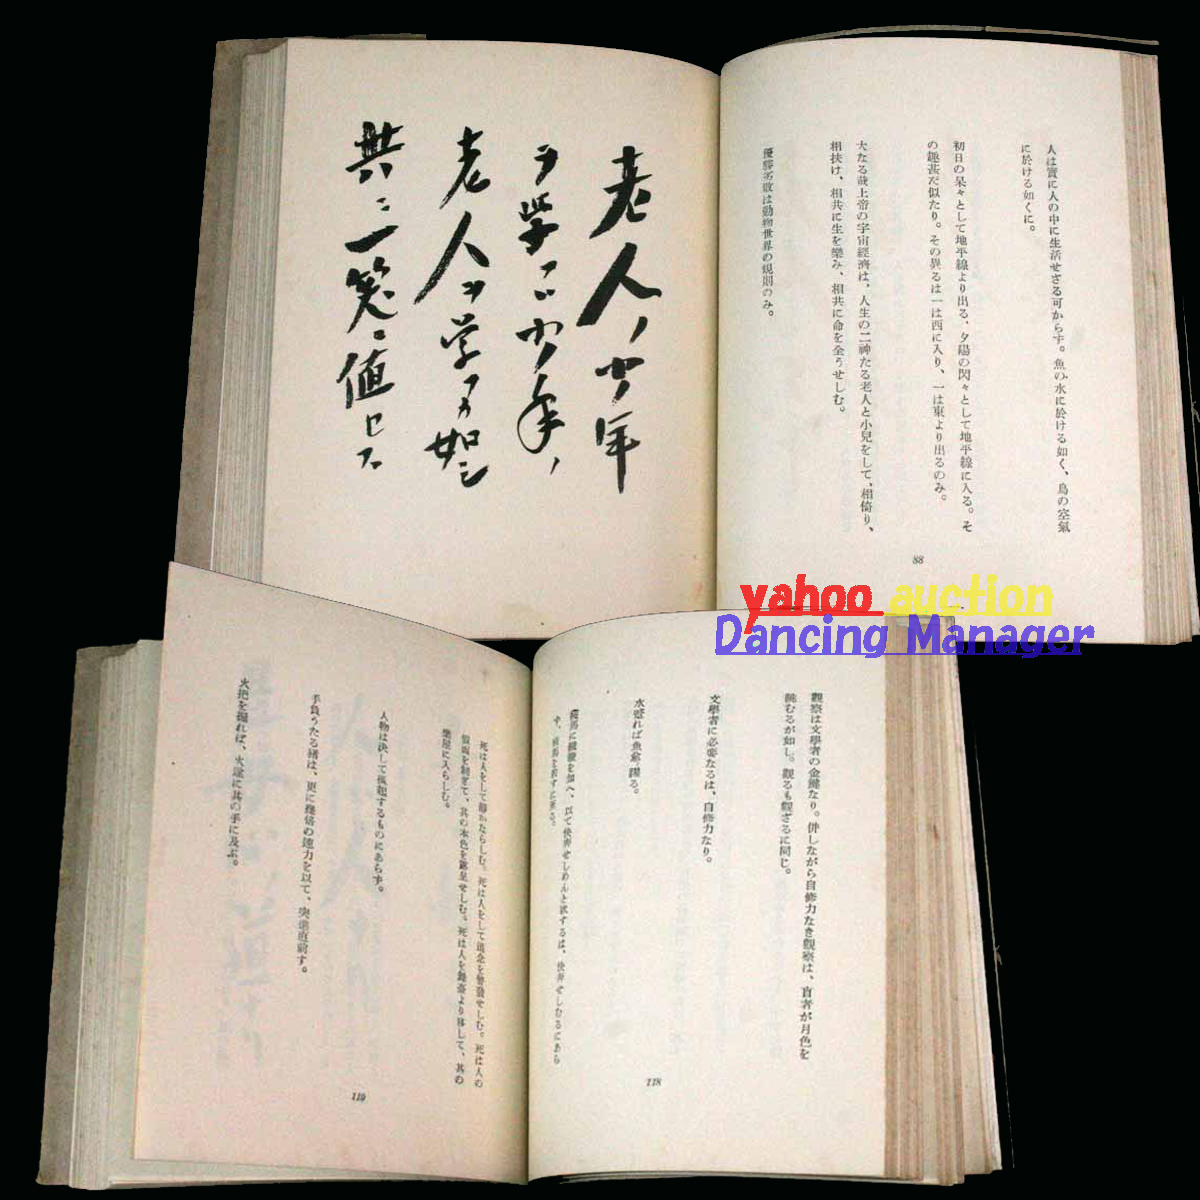 人は實に人の中に生活せざる可からず。魚の水に於ける如く、鳥の空氣
に於ける如くに。
初日の杲々として地平線より出る、夕陽の閃々として地平線に入る。そ
の趣甚だ似たり。その異るは一は西に入り、一は東より出るのみ。
大なる哉上帝の宇宙經濟は、人生の二神たる老人と小兒をして、相倚り、
相扶け、相共に生を樂み、相共に命を全うせしむ。
優勝劣敗は動物世界の規則のみ。
88
老人ノ少年
ヲ学ブハ少年ノ
老人ヲ学ブガ如シ
共ニ一笑ニ値セズ
yahoo auction
Dancing Manager
觀察は文學者の金鍵なり。併しながら自修力なき觀察は、盲者が月色を
眺むるが如し。觀るも觀ざるに同じ。
文學者に必要なるは、自修力なり。
水濁れば魚
る。
に鞭を加へ、以て快奔せしめんと欲するは、快奔せしむるにあら
118
死は人をして靜かならしむ。死は人をして追念を發せしむ。死は人の
假面を剝ぎて、其の本色を露呈せしむ。死は人を舞臺より移して、其の
樂屋に入らしむ。
人物は決して孤起するものにあらず。
手負うたる猪は、更に幾倍の速力を以て、突進直前す。
火把を握れば、火遂に其の手に及ぶ。
119